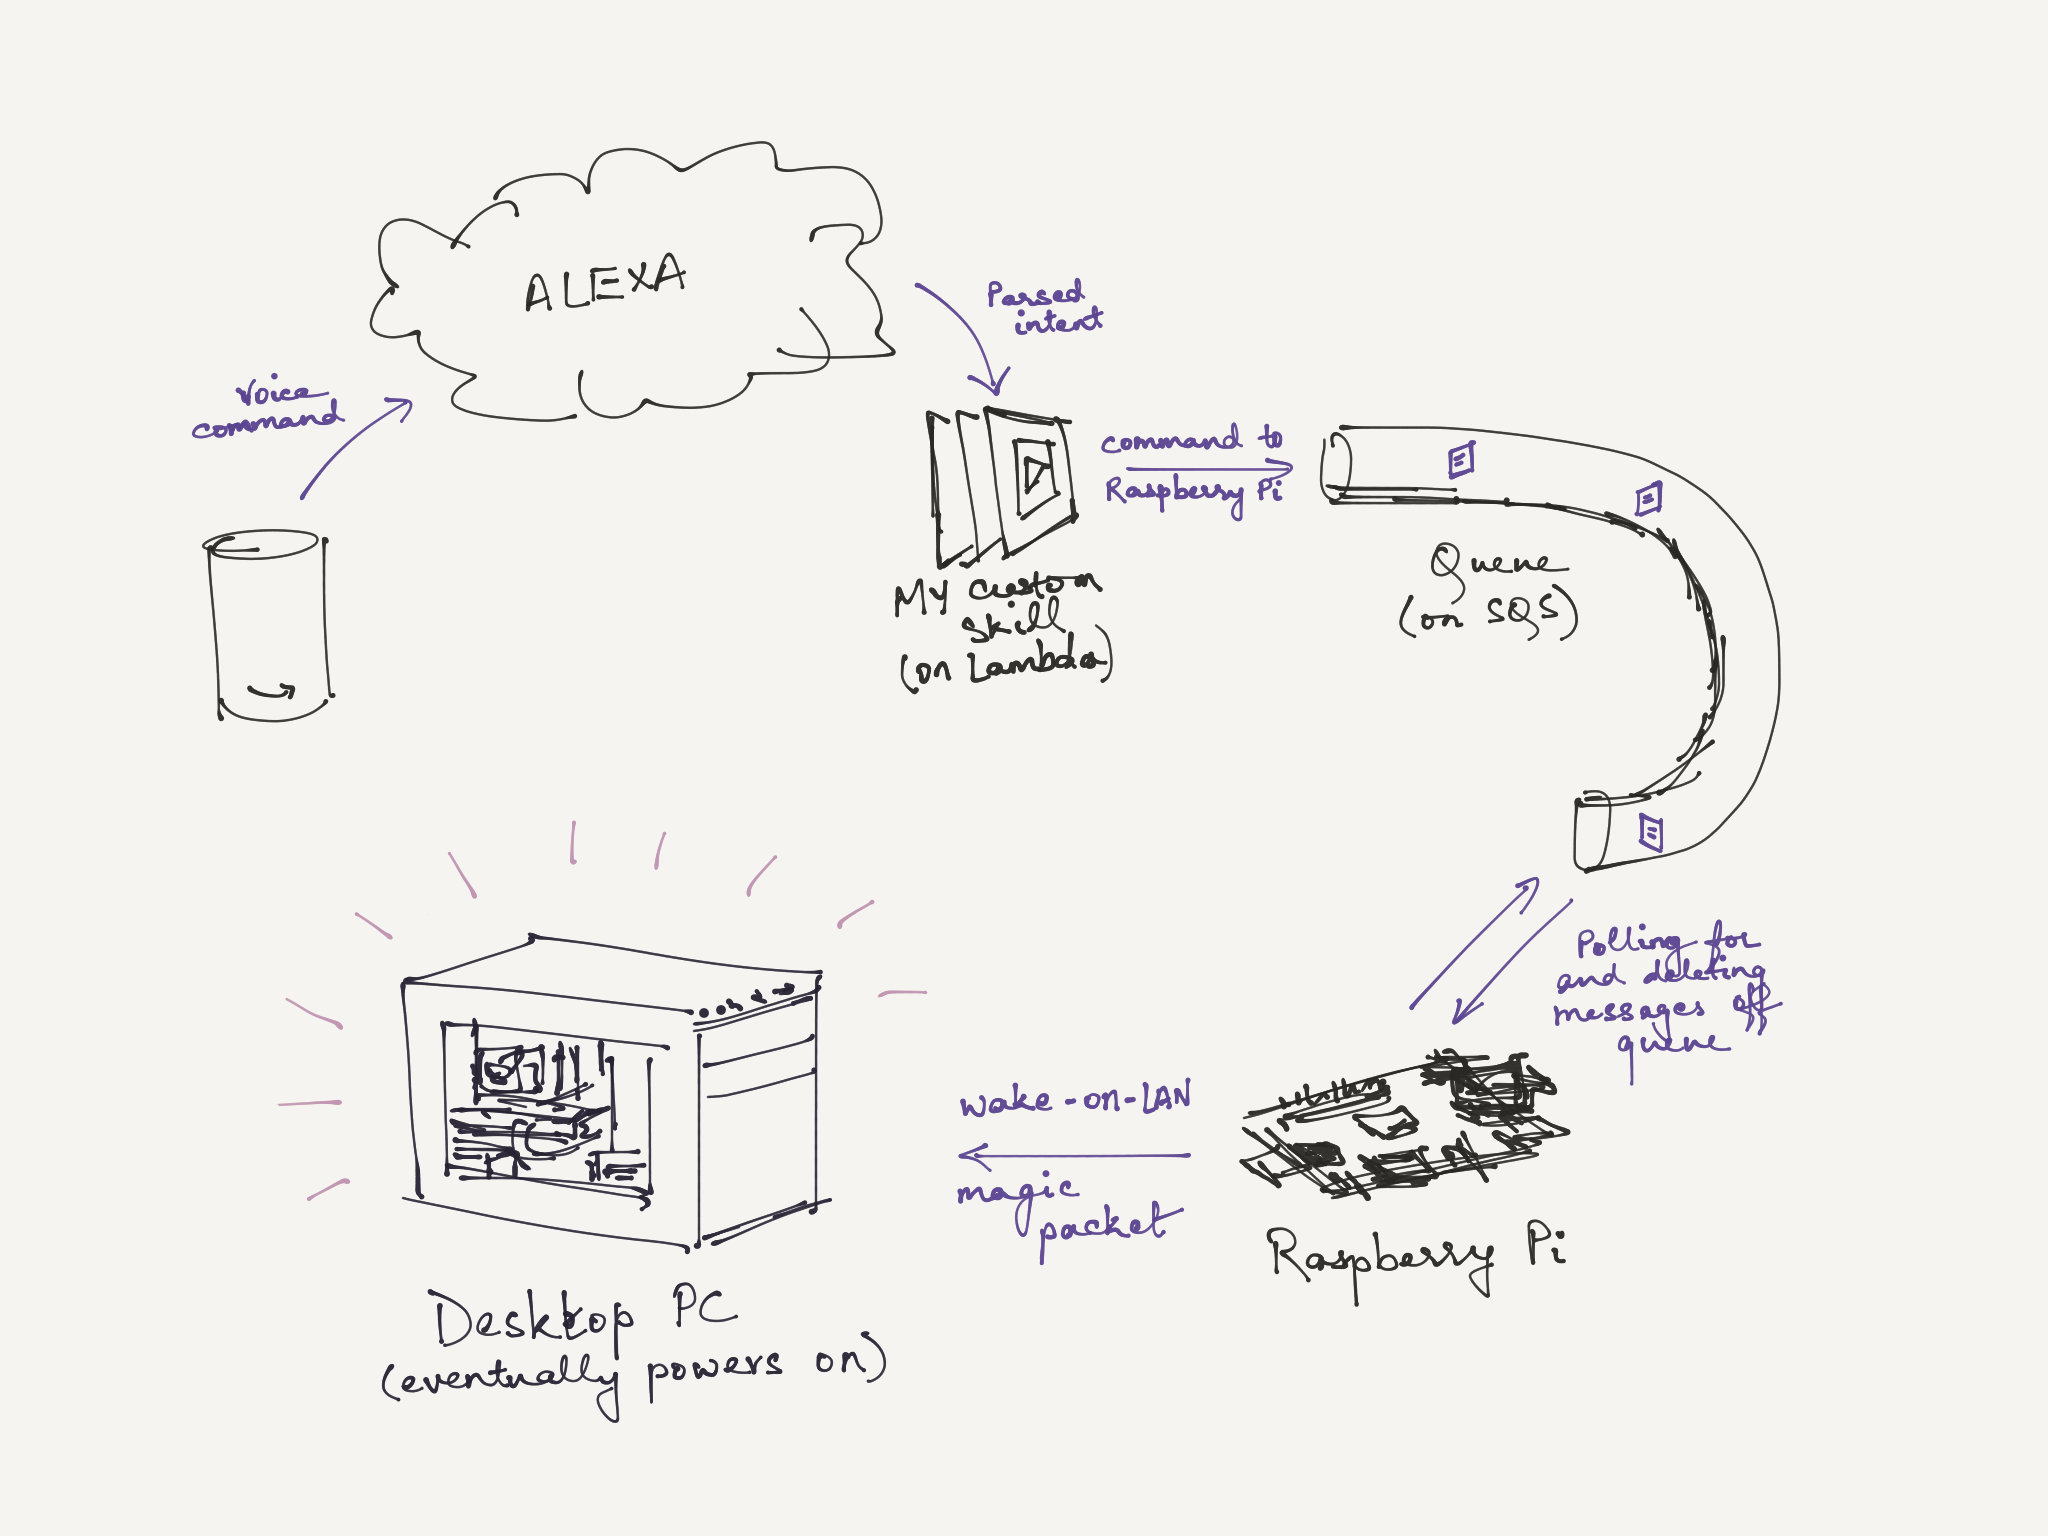 ALEXA
Voice
command
Parsed
intent
command to
Raspberry Pi
My custom
skill
(on Lambda)
Queue
(on SQS)
Polling for
and deleting
messages off
queue
wake-on-LAN
magic
packet
Raspberry Pi
Desktop PC
(eventually powers on)